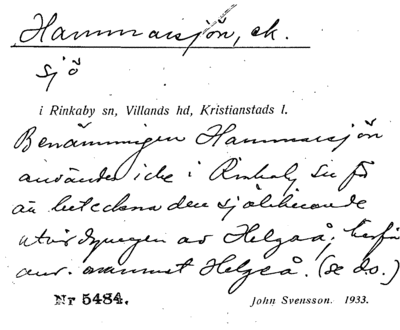 Hammarsjön, ek.
sjö
i Rinkaby sn, Villands hd, Kristianstads l.
Benämningen Hammarsjön
användes icke i Rinkaby sn för
att beteckna den sjöliknande
utvidgningen av Helgaå; härför
anv. namnet Helgeå. (se d.o.)
Nr 5484.
John Svensson. 1933.